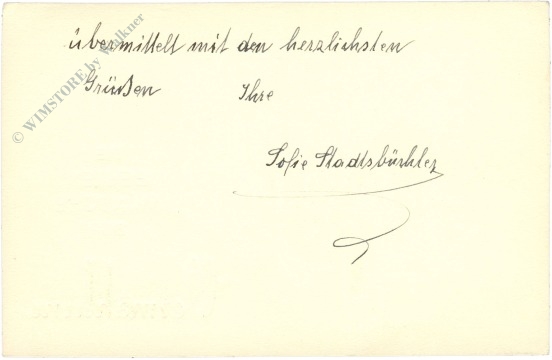 übermittelt mit den herzlichsten
Grüßen Ihre
Sofie Stadtsbüchler
© WIMSTORE by Walkner